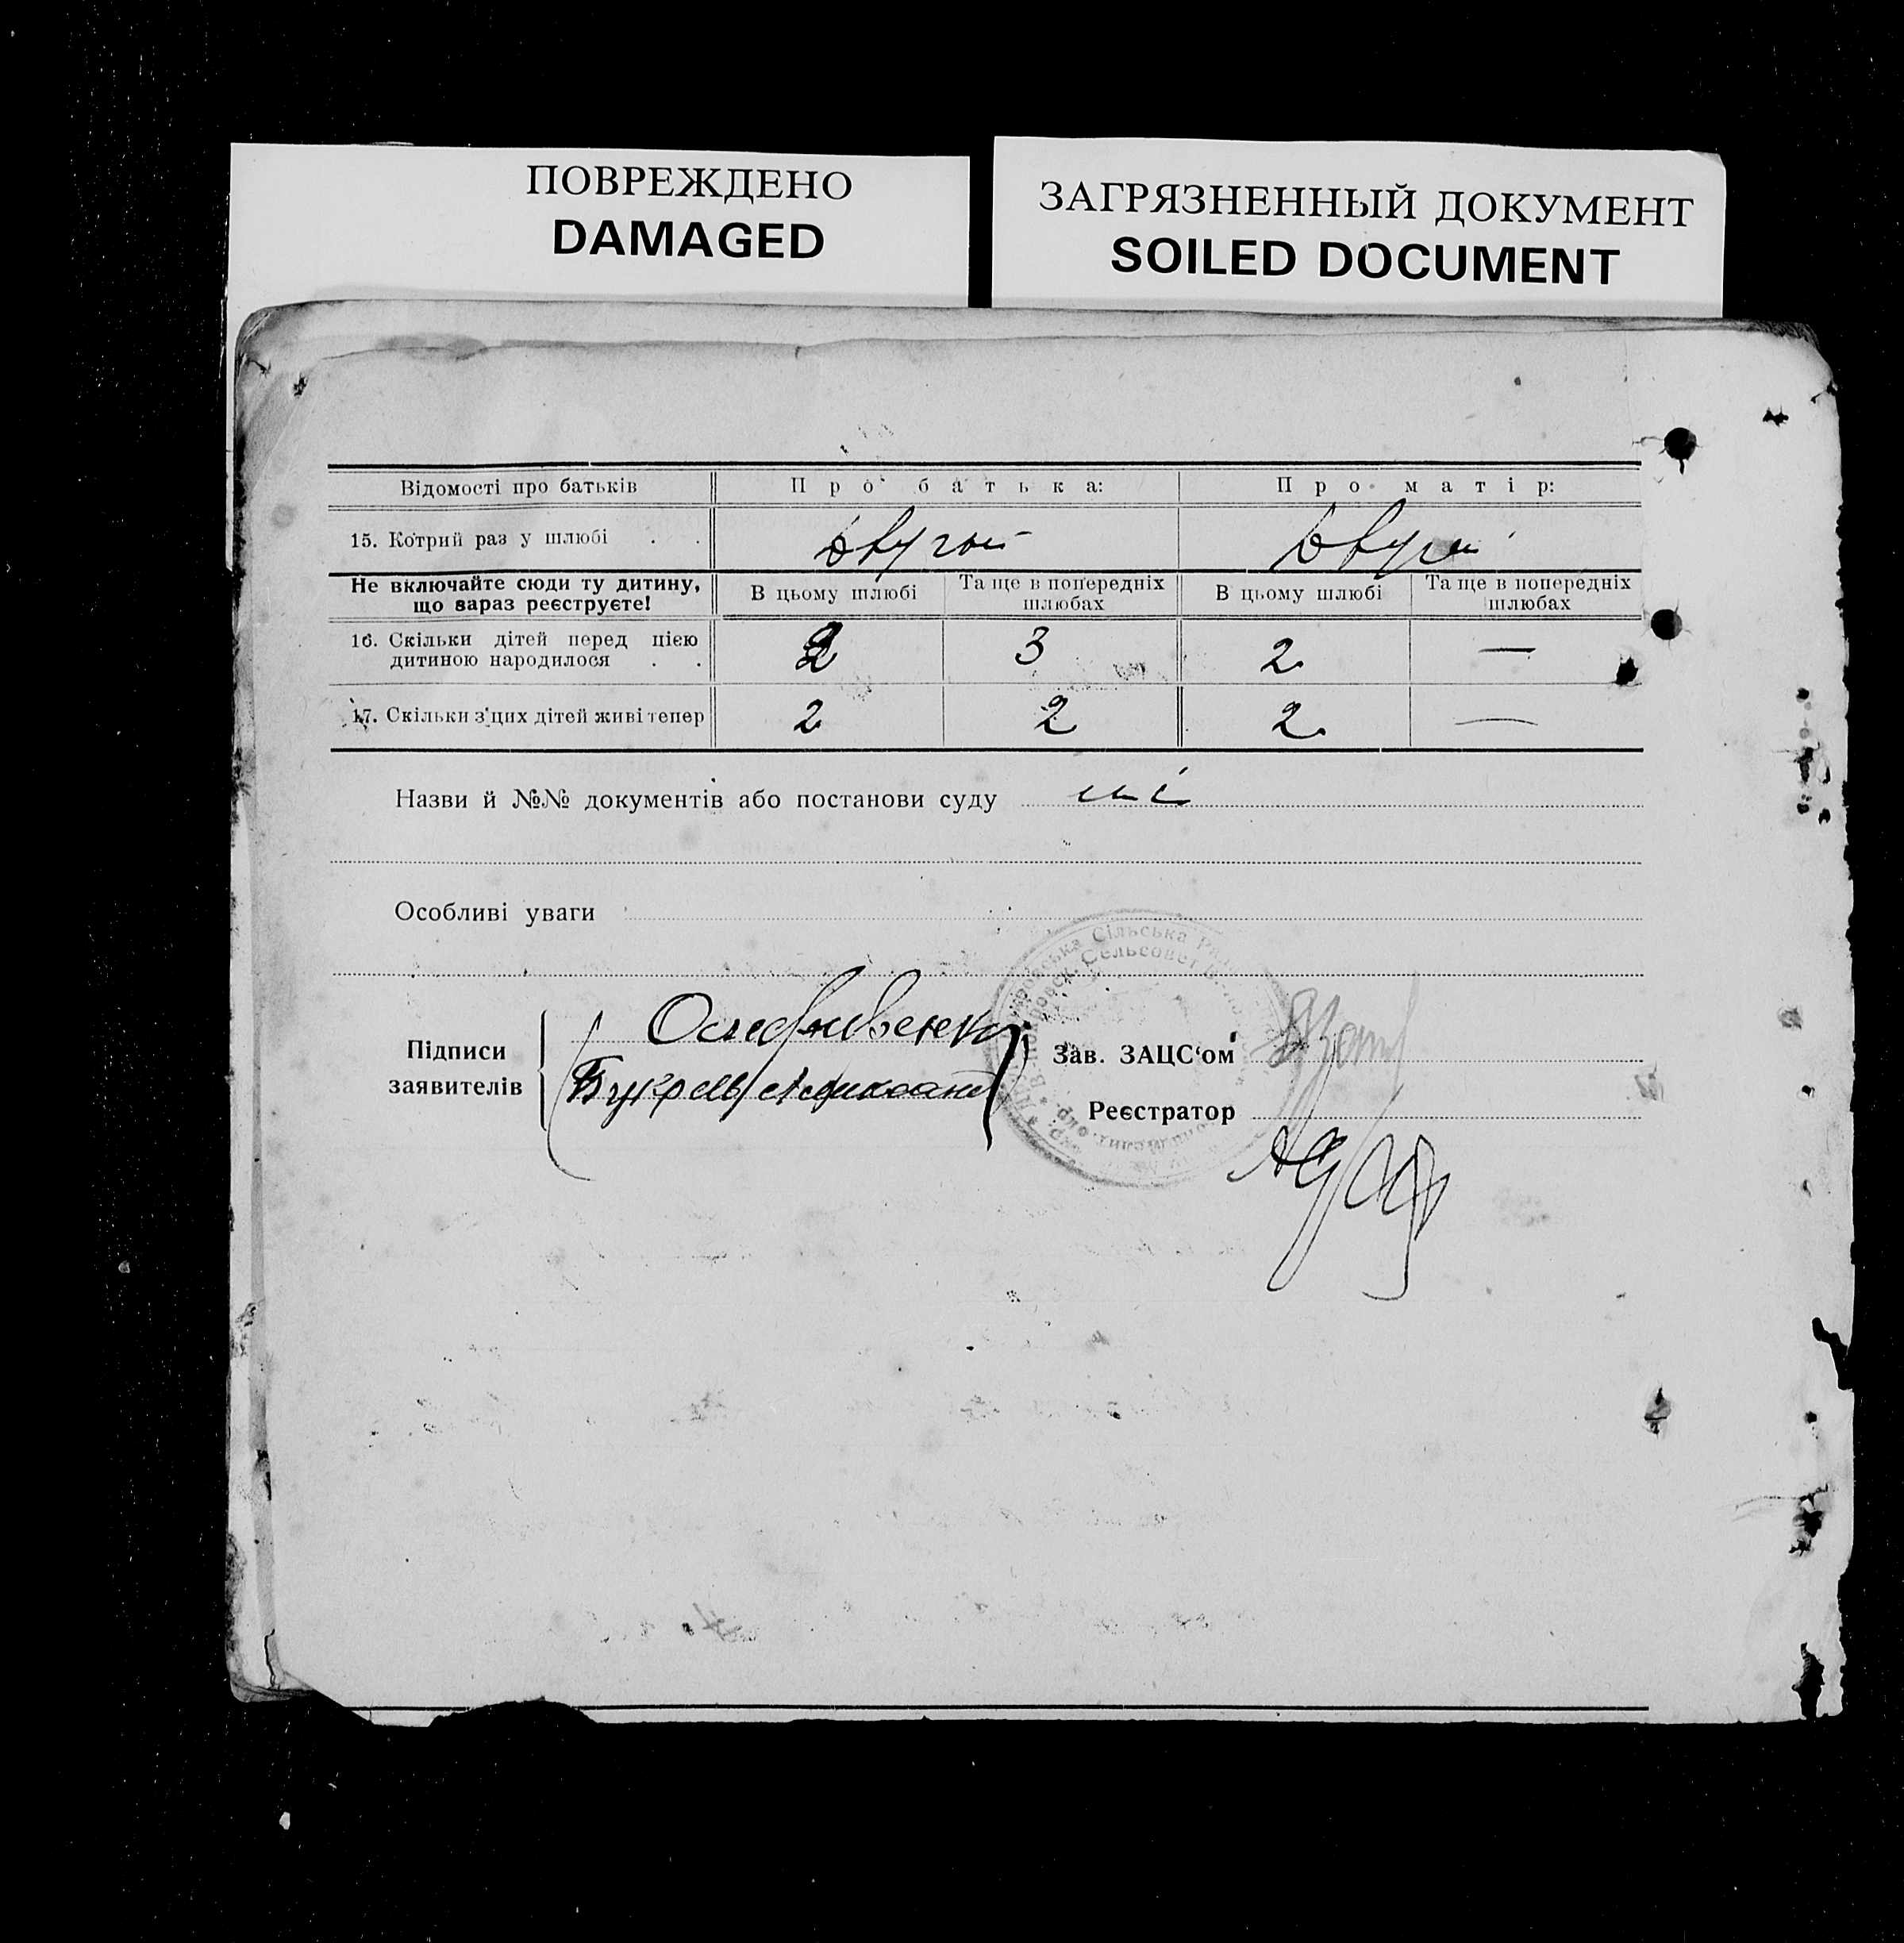 ПОВРЕЖДЕНО
DAMAGED
ЗАГРЯЗНЕННЫЙ ДОКУМЕНТ
SOILED DOCUMENT
Відомості про батьків Про батька: Про матір:
15. Котрий раз у шлюбі . .
Не включайте сюди ту дитину, що зараз реєструєте! В цьому шлюбі Та ще в попередніх шлюбах В цьому шлюбі Та ще в попередніх шлюбах
16. Скільки дітей перед цією дитиною народилося . . 2 3 2 —
17. Скільки з'цих дітей живі тепер 2 2 2 —
Назви й №№ документів або постанови суду
Особливі уваги
Сільська
Сельсовет
Підписи заявителів
Зав. ЗАЦС‘ом
Реєстратор